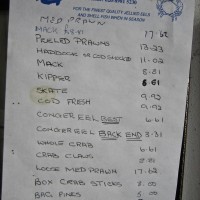 FOR THE FINEST QUALITY JELLIED EELS
AND SHELL FISH WHEN IN SEASON
MED PRAWN 17.62
MACK
PEELED PRAWNS 13.23
HADDOCK OR COD SMOKED 11.02
MACK 8.81
KIPPER 6.61
SKATE 9.92
COD FRESH 9.92
CONGER EEL BEST 6.61
CONGER EEL BACK END 3.31
WHOLE CRAB 6.61
CRAB CLAWS 8.81
LOOSE MED PRAWN 17.62
BOX CRAB STICKS 8.00
BAG FINES 5.00